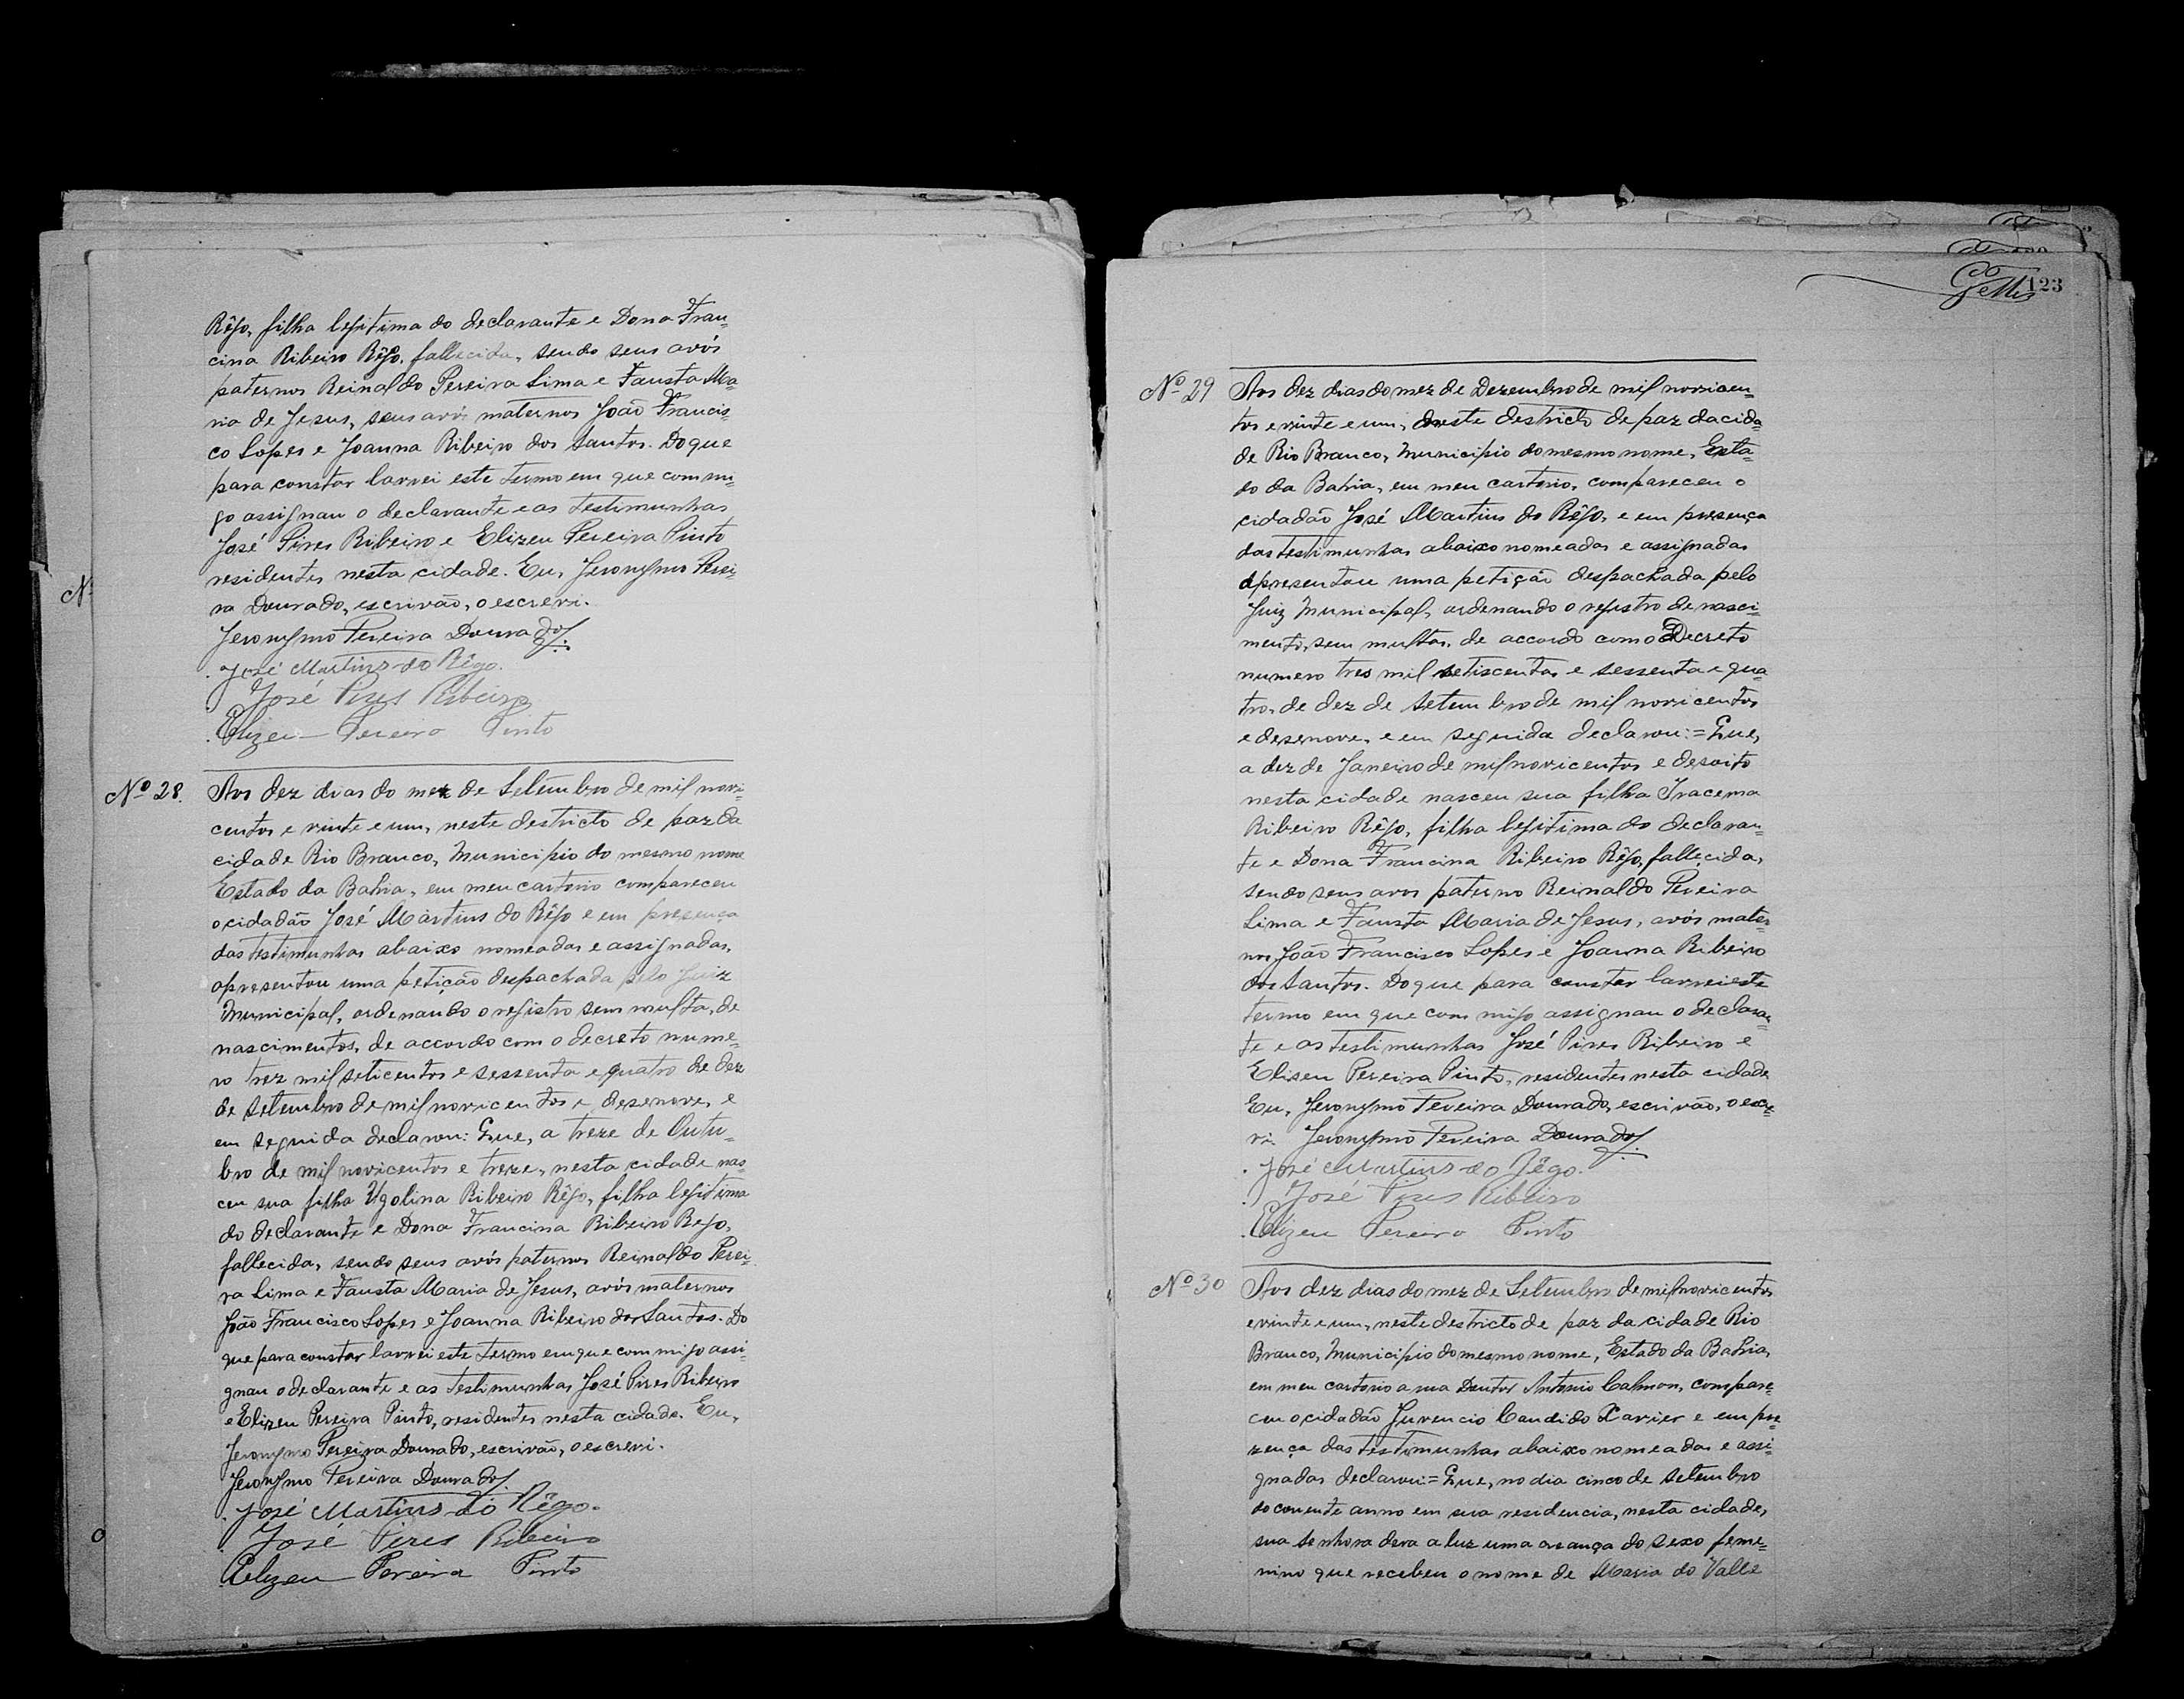 Rêgo, filha legitima do declarante e Dona Fran=
cina Ribeiro Rêgo, fallecida, sendo seus avós
paternos Reinaldo Pereira Lima e Fausta Ma=
ria de Jesus, seus avós maternos João Francis=
co Lopes e Joanna Ribeiro dos Santos. Do que
para constar lavrei este termo em que commi=
go assignau o declarante e as testimunhas
José Pires Ribeiro e Elizeu Pereira Pinto
residentes nesta cidade. Eu, Jeronymo Perei=
ra Dourado, escrivão, o escrevi.
Jeronymo Pereira Dourado
José Martins do Rêgo.
José Pires Ribeiro
Elizeu Pereira Pinto
Nº 28. Aos dez dias do mez de Setembro de mil novi=
centos e vinte e um, neste destricto de paz da
cidade Rio Branco, Municipio do mesmo nome
Estado da Bahia, em meu cartorio compareceu
o cidadão José Martins do Rêgo e em presença
das testimunhas abaixo nomeadas e assignadas,
apresentou uma petição despachada pelo Juiz
Municipal, ordenando o registro sem multa, de
nascimentos, de accordo com o decreto nume=
ro trez mil seticentos e sessenta e quatro de dez
de Setembro de mil novicentos e desenove, e
em seguida declarou: Que, a treze de Outu=
bro de mil novicentos e treze, nesta cidade nas=
ceu sua filha Ugolina Ribeiro Rêgo, filha legitima
do declarante e Dona Francina Ribeiro Rego,
fallecida, sendo seus avós paternos Reinaldo Perei=
ra Lima e Fausta Maria de Jesus, avós maternos
João Francisco Lopes e Joanna Ribeiro dos Santos. Do
que para constar lavrei este termo em que commigo assi=
gnau o declarante e as testimunhas José Pires Ribeiro
e Elizeu Pereira Pinto, residentes nesta cidade. Eu,
Jeronymo Pereira Dourado, escrivão, o escrevi.
Jeronymo Pereira Dourado
José Martins do Rêgo.
José Pires Ribeiro
Elizeu Pereira Pinto
123
Nº 29 Aos dez dias do mez de Dezembro de mil novicen=
tos e vinte e um, neste destricto de paz da cida=
de Rio Branco, Municipio do mesmo nome, Esta=
do da Bahia, em meu cartorio, compareceu o
cidadão José Martins do Rêgo, e em presença
das testimunhas abaixo nomeadas e assignadas
apresentou uma petição despachada pelo
Juiz Municipal, ordenando o registro de nasci=
mento, sem multas, de accordo com o Decreto
numero tres mil setiscentos e sessenta e qua=
tro, de dez de Setembro de mil novicentos
e desenove, e em seguida declarou:= Que,
a dez de Janeiro de mil novicentos e desoito
nesta cidade nasceu sua filha Iracema
Ribeiro Rêgo, filha legitima do declaran=
te e Dona Francina Ribeiro Rêgo, fallecida,
sendo seus avos paterno Reinaldo Pereira
Lima e Fausta Maria de Jesus, avós mater=
nos João Francisco Lopes e Joanna Ribeiro
dos Santos. Do que para constar lavrei este
termo em que commigo assignau o declaran=
te e as testimunhas José Pires Ribeiro e
Eliseu Pereira Pinto, residentes nesta cidade
Eu, Jeronymo Pereira Dourado, escrivão, o escre=
vi. Jeronymo Pereira Dourado
José Martins do Rêgo.
José Pires Ribeiro
Elizeu Pereira Pinto
Nº 30 Aos dez dias do mez de Setembro de mil novicentos
e vinte e um, neste destricto de paz da cidade Rio
Branco, Municipio do mesmo nome, Estado da Bahia,
em meu cartorio a rua Doutor Antonio Calmon, compare=
ceu o cidadão Juvencio Candido Xavier e em pre=
zença das testimunhas abaixo nomeadas e assi=
gnadas declarou:= Que, no dia cinco de Setembro
do corrente anno em sua residencia, nesta cidade,
sua senhora dera a luz uma creança do sexo feme=
nino que recebeu o nome de Maria do Valle